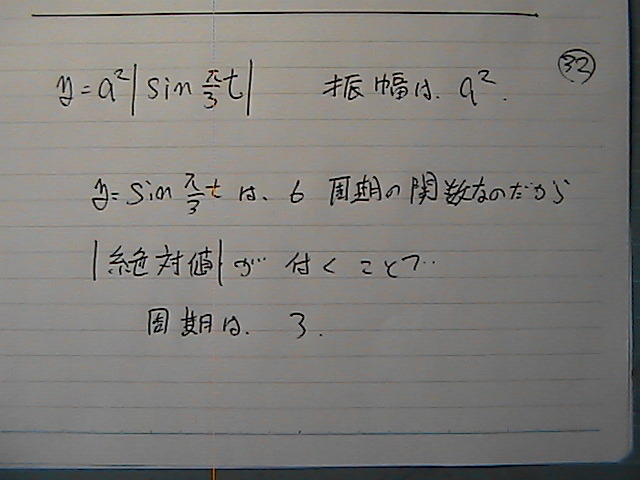 ㉜
y=a²|sin π/3 t| 振幅は、a².
y=sin π/3 t は、6 周期の関数なのだから
|絶対値|が 付くことで
周期は、3.